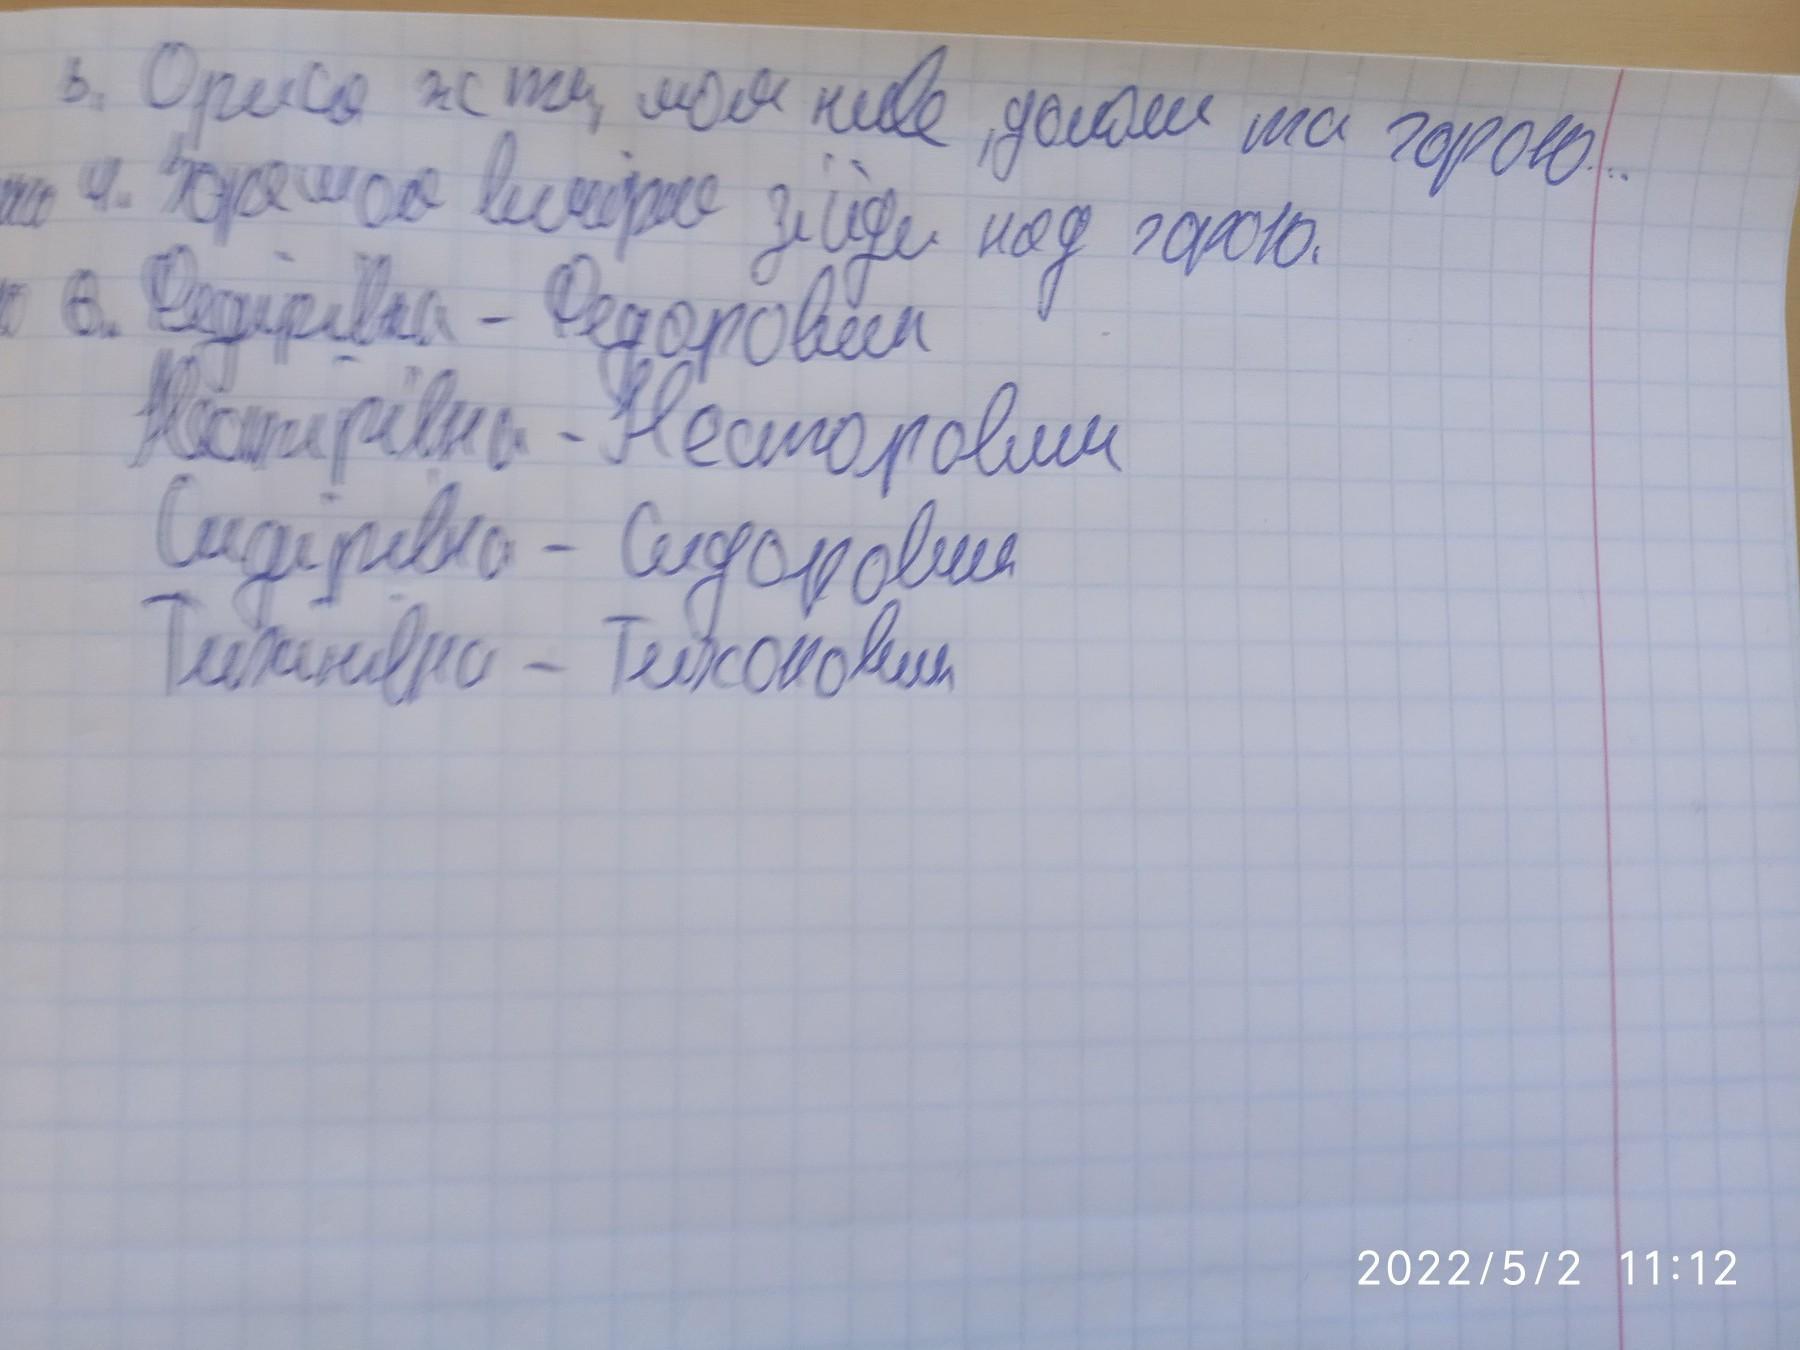 3. Орися ж ти, моя ниво, долом та горою...
4. Зоре моя вечірняя зійди над горою.
6. Федірівна - Федорович
Нестірівна - Несторович
Сидірівна - Сидорович
Тихінівна - Тихонович
2022/5/2 11:12